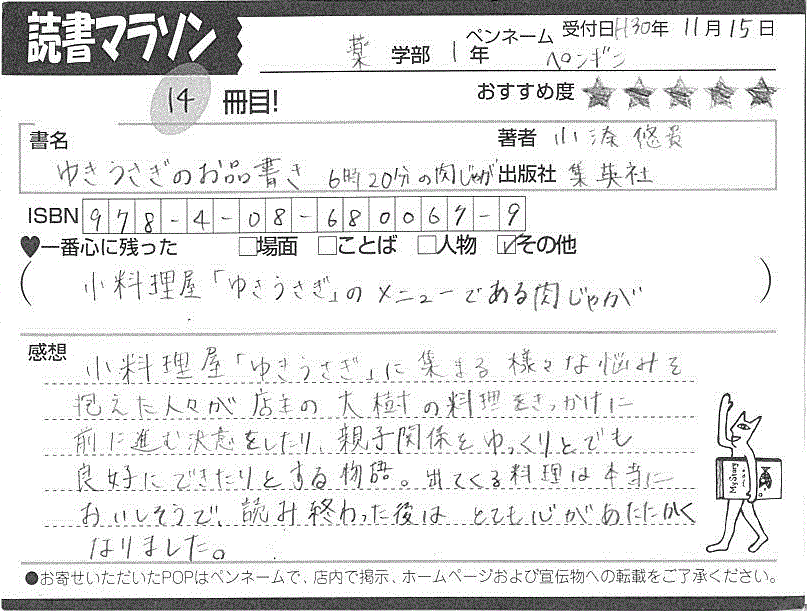 読書マラソン
薬 学部 1 年 ペンネーム ペンギン 受付日H30年 11月15日
14 冊目! おすすめ度 ★★★★★
書名 著者 小湊悠貴
ゆきうさぎのお品書き 6時20分の肉じゃが 出版社 集英社
ISBN 978-4-08-680067-9
♥一番心に残った □場面 □ことば □人物 ☑その他
(小料理屋「ゆきうさぎ」のメニューである肉じゃが)
感想
小料理屋「ゆきうさぎ」に集まる様々な悩みを
抱えた人々が店主の大樹の料理をきっかけに
前に進む決意をしたり、親子関係をゆっくりとでも
良好にできたりとする物語。出てくる料理は本当に
おいしそうで、読み終わった後はとても心があたたかく
なりました。
My Story
●お寄せいただいたPOPはペンネームで、店内で掲示、ホームページおよび宣伝物への転載をご了承ください。